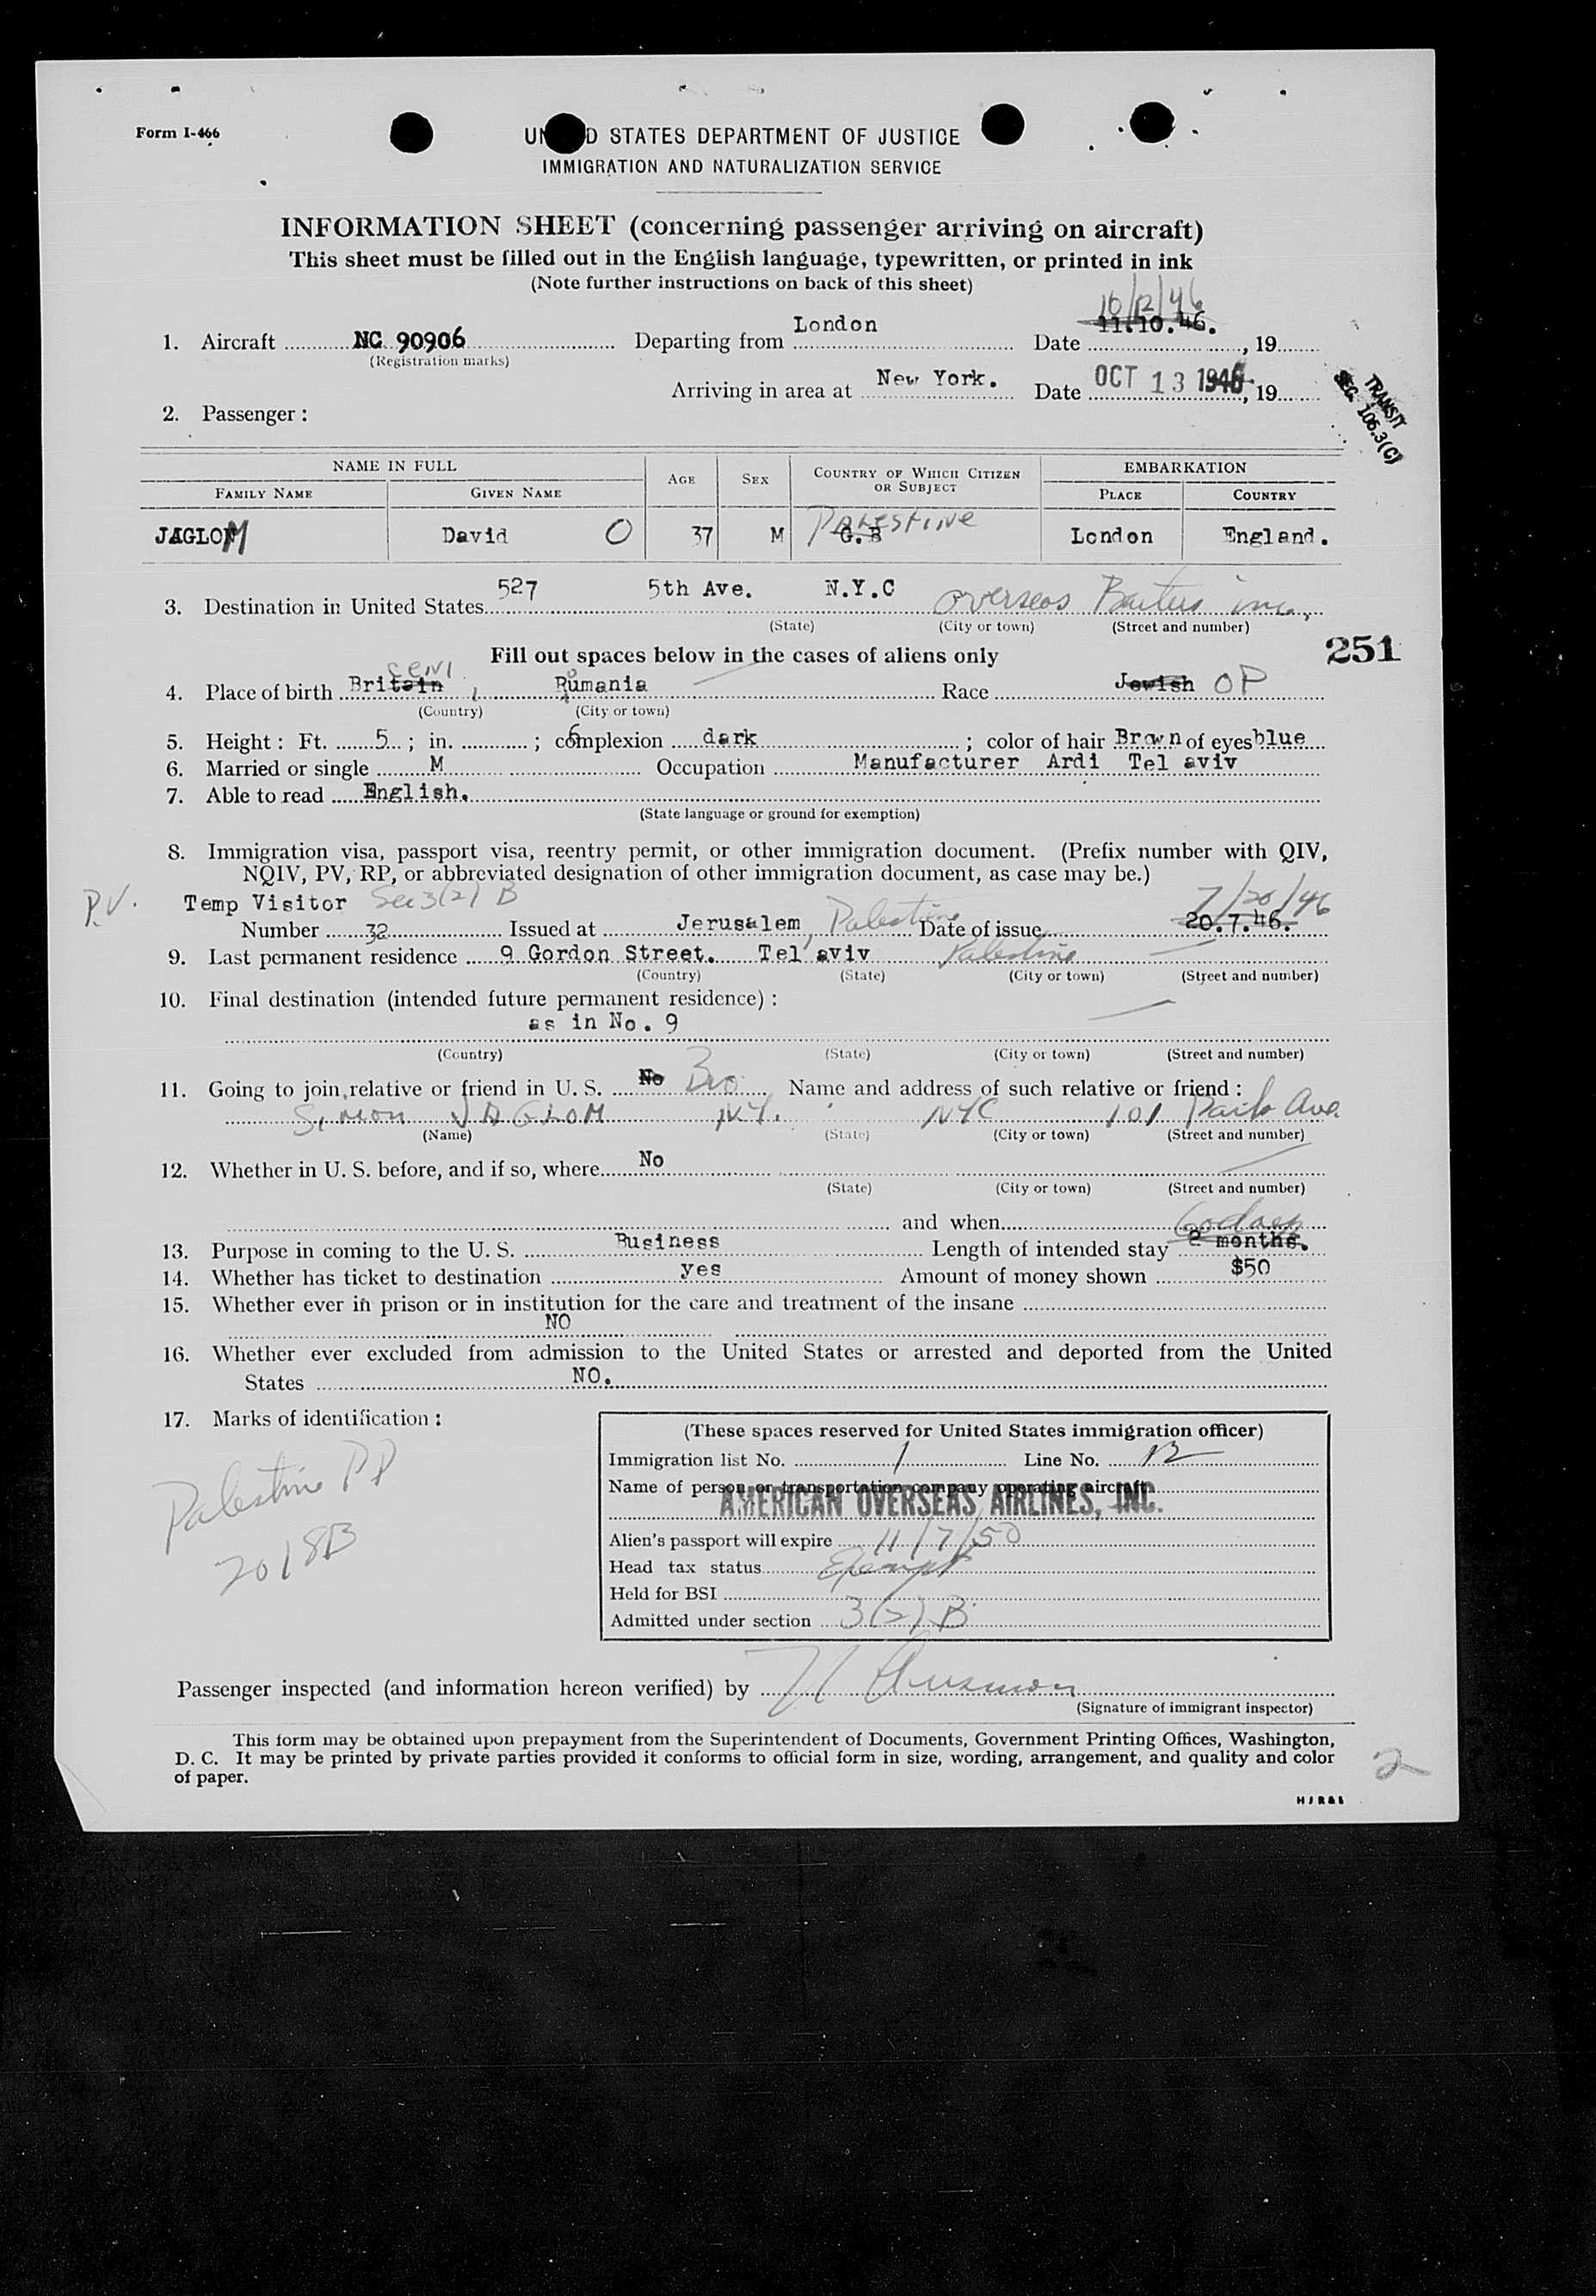 Form I-466
UNITED STATES DEPARTMENT OF JUSTICE
IMMIGRATION AND NATURALIZATION SERVICE
INFORMATION SHEET (concerning passenger arriving on aircraft)
This sheet must be filled out in the English language, typewritten, or printed in ink
(Note further instructions on back of this sheet)
10/12/46
1. Aircraft NC 90906 Departing from London Date 11.10.46. , 19
(Registration marks)
Arriving in area at New York. Date OCT 13 1946 , 19
TRANSIT
SEC. 106.3(C)
2. Passenger :
NAME IN FULL AGE SEX COUNTRY OF WHICH CITIZEN OR SUBJECT EMBARKATION
FAMILY NAME GIVEN NAME PLACE COUNTRY
JAGLOM David O 37 M G.B Palestine London England.
3. Destination in United States 527 5th Ave. N.Y.C Overseas inc.,
(State) (City or town) (Street and number)
251
Fill out spaces below in the cases of aliens only
4. Place of birth Britain Rumania Race Jewish OP
(Country) (City or town)
5. Height : Ft. 5 ; in. 6 ; complexion dark ; color of hair Brown of eyes blue
6. Married or single M Occupation Manufacturer Ardi Tel aviv
7. Able to read English.
(State language or ground for exemption)
8. Immigration visa, passport visa, reentry permit, or other immigration document. (Prefix number with QIV,
NQIV, PV, RP, or abbreviated designation of other immigration document, as case may be.)
P.V. Temp Visitor Sec 3(2) B 7/20/46
Number 32 Issued at Jerusalem, Palestine Date of issue 20.7.46.
9. Last permanent residence 9 Gordon Street. Tel aviv Palestine
(Country) (State) (City or town) (Street and number)
10. Final destination (intended future permanent residence) :
as in No. 9
(Country) (State) (City or town) (Street and number)
11. Going to join relative or friend in U. S. No Bro Name and address of such relative or friend :
Simon JAGLOM N.Y. NYC 101 Park Ave
(Name) (State) (City or town) (Street and number)
12. Whether in U. S. before, and if so, where No
(State) (City or town) (Street and number)
and when
60 days
13. Purpose in coming to the U. S. Business Length of intended stay 2 months.
14. Whether has ticket to destination yes Amount of money shown $50
15. Whether ever in prison or in institution for the care and treatment of the insane
NO
16. Whether ever excluded from admission to the United States or arrested and deported from the United
States NO.
17. Marks of identification :
Palestine PP
2018B
(These spaces reserved for United States immigration officer)
Immigration list No. 1 Line No. 12
Name of person or transportation company operating aircraft
AMERICAN OVERSEAS AIRLINES, INC.
Alien's passport will expire 11/7/50
Head tax status Exempt
Held for BSI
Admitted under section 3(2) B
Passenger inspected (and information hereon verified) by
(Signature of immigrant inspector)
This form may be obtained upon prepayment from the Superintendent of Documents, Government Printing Offices, Washington,
D. C. It may be printed by private parties provided it conforms to official form in size, wording, arrangement, and quality and color
of paper.
2